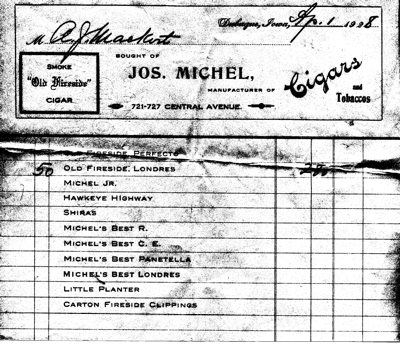 Dubuque, Iowa, Ap. 1 1928
M A. J. Mackert
BOUGHT OF
SMOKE
"Old Fireside"
CIGAR
JOS. MICHEL,
MANUFACTURER OF
Cigars
and
Tobaccos
721-727 CENTRAL AVENUE.
FIRESIDE PERFECTO
50 OLD FIRESIDE, LONDRES
MICHEL JR.
HAWKEYE HIGHWAY
SHIRAS
MICHEL'S BEST R.
MICHEL'S BEST C. E.
MICHEL'S BEST PANETELLA
MICHEL'S BEST LONDRES
LITTLE PLANTER
CARTON FIRESIDE CLIPPINGS